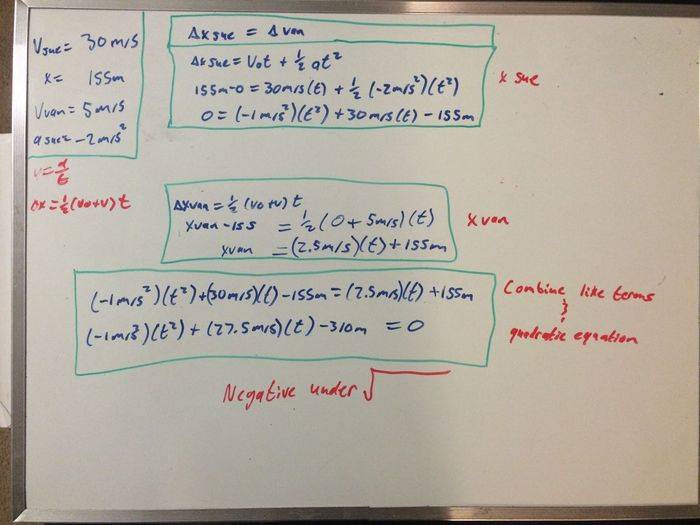 Vsue = 30m/s
x = 155m
Vvan = 5m/s
asue = -2m/s²
v = d/t
Δx = ½(v0+v)t
Δx sue = Δ van
Δx sue = V0t + ½ at²
155m-0 = 30m/s(t) + ½ (-2m/s²)(t²)
0 = (-1m/s²)(t²) + 30m/s(t) - 155m
x sue
Δxvan = ½ (v0+v) t
xvan - 155 = ½ (0 + 5m/s)(t)
xvan = (2.5m/s)(t) + 155m
xvan
(-1m/s²)(t²)+(30m/s)(t) - 155m = (2.5m/s)(t) + 155m
(-1m/s²)(t²) + (27.5m/s)(t) - 310m = 0
Combine like terms
quadratic equation
Negative under √